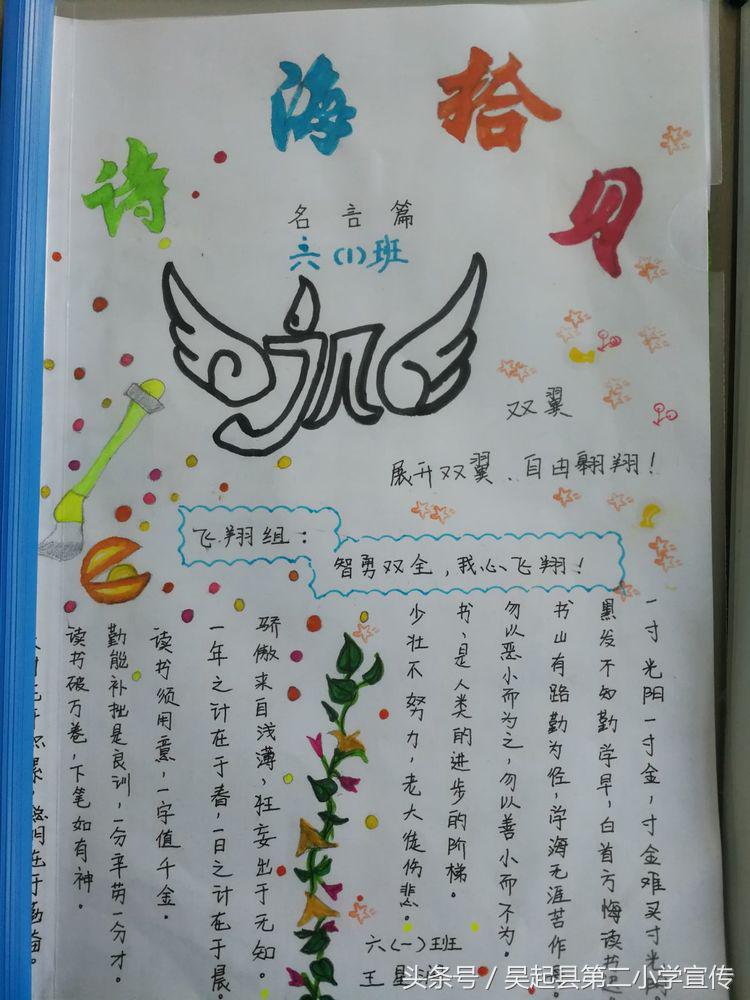 诗海拾贝
名言篇
六(1)班
双翼
展开双翼、自由翱翔！
飞翔组：
智勇双全，我心飞翔！
一寸光阳一寸金，寸金难买寸光
黑发不知勤学早，白首方悔读书
书山有路勤为径，学海无涯苦作
勿以恶小而为之，勿以善小而不为。
书，是人类的进步的阶梯。
少壮不努力，老大徒伤悲。
六(一)班
王星
骄傲来自浅薄，狂妄出于无知。
一年之计在于春，一日之计在于晨。
读书须用意，一字值千金。
勤能补拙是良训，一分辛劳一分才。
读书破万卷，下笔如有神。
头条号/吴起县第二小学宣传